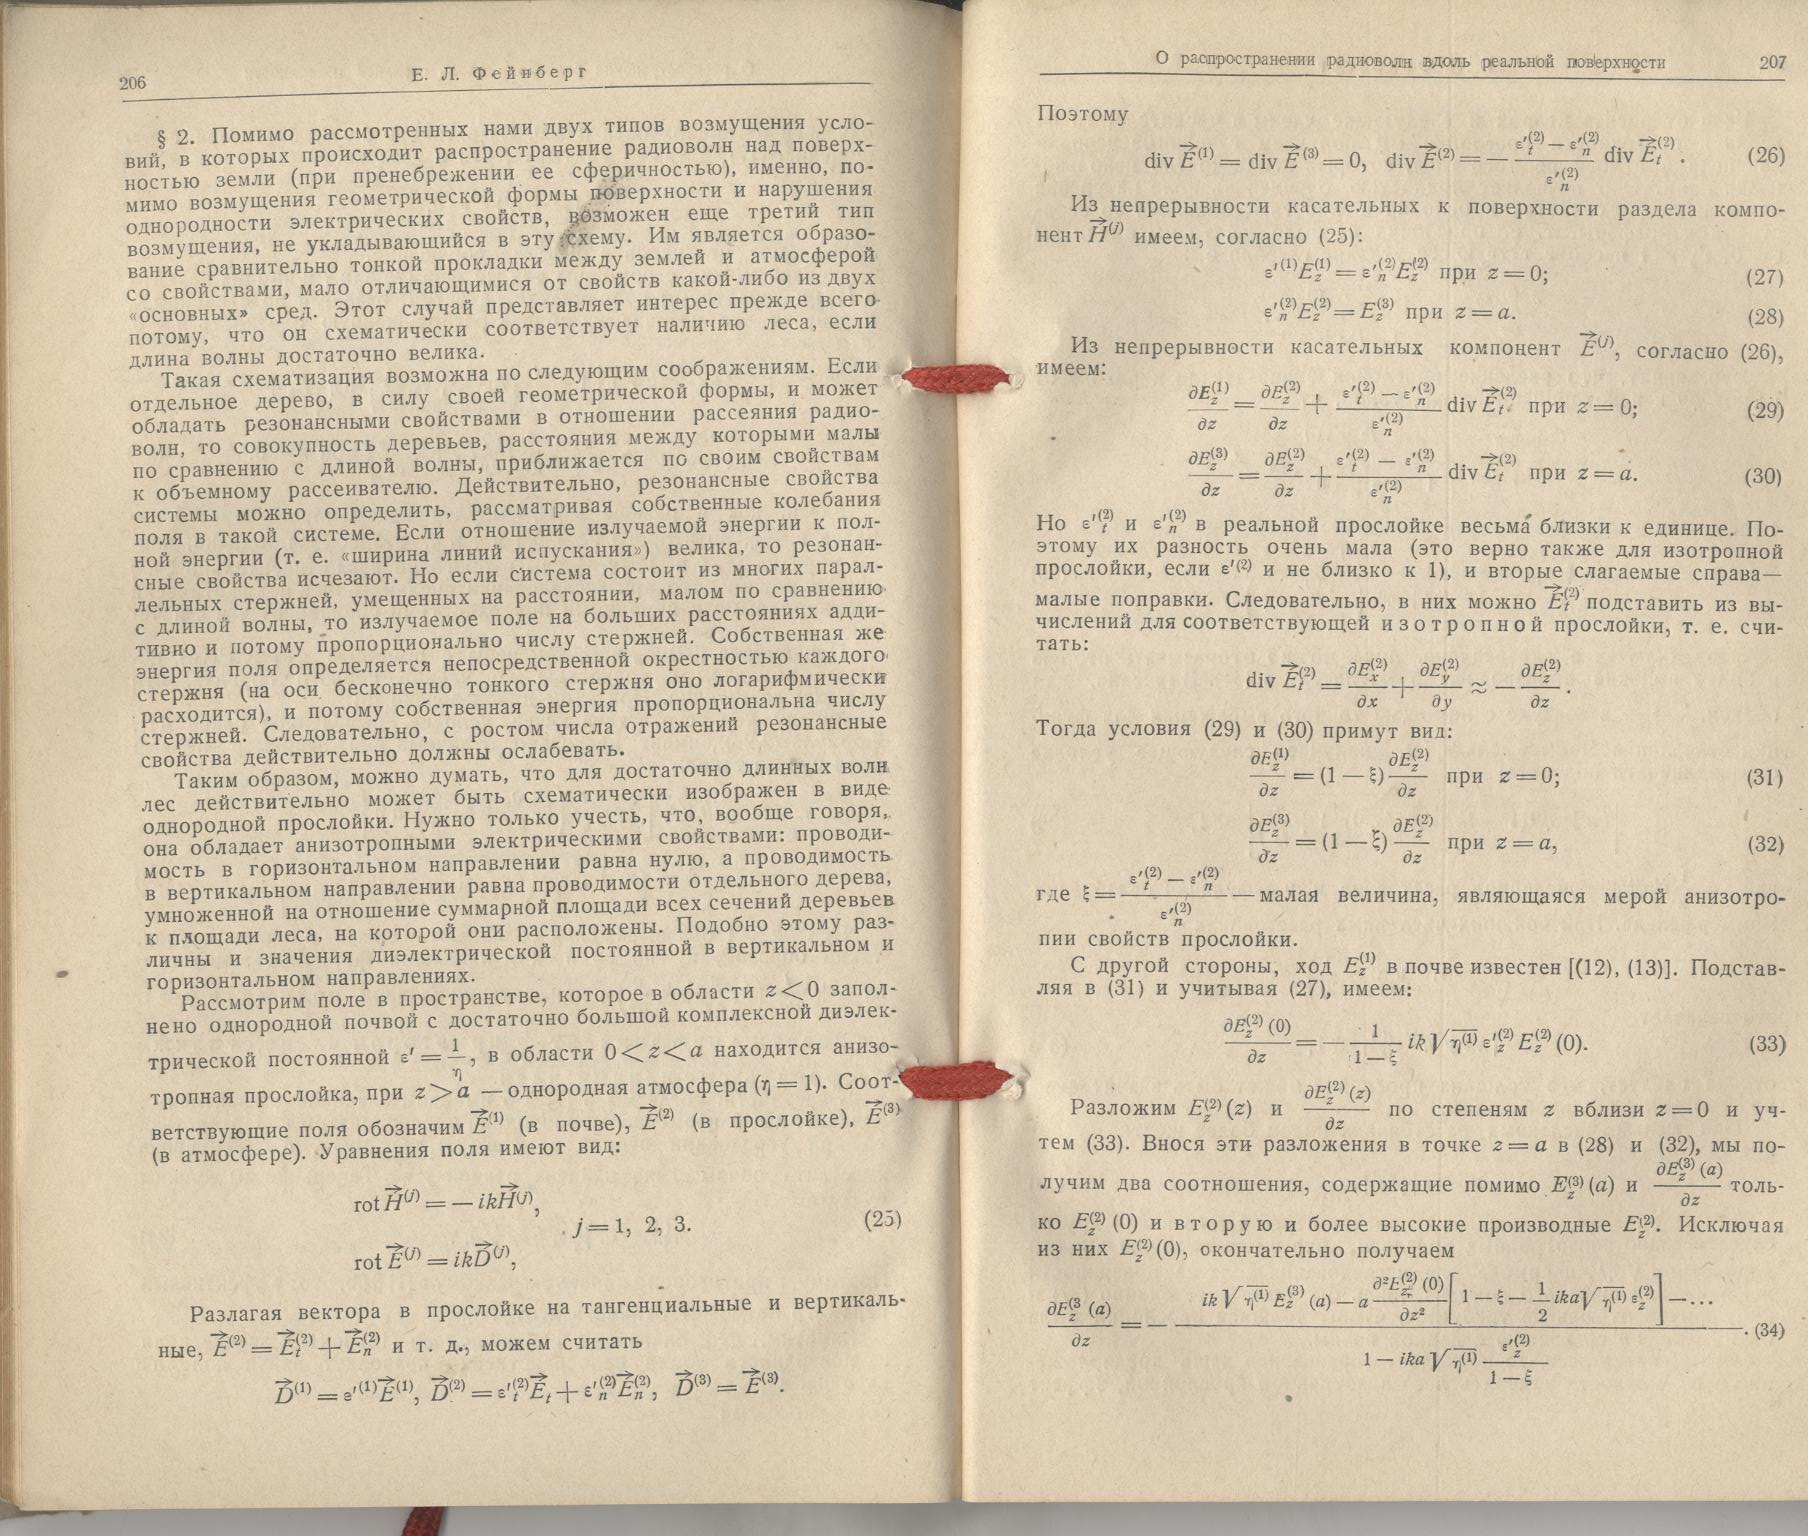 206
Е. Л. Фейнберг
§ 2. Помимо рассмотренных нами двух типов возмущения усло-
вий, в которых происходит распространение радиоволн над поверх-
ностью земли (при пренебрежении ее сферичностью), именно, по-
мимо возмущения геометрической формы поверхности и нарушения
однородности электрических свойств, возможен еще третий тип
возмущения, не укладывающийся в эту схему. Им является образо-
вание сравнительно тонкой прокладки между землей и атмосферой
со свойствами, мало отличающимися от свойств какой-либо из двух
«основных» сред. Этот случай представляет интерес прежде всего
потому, что он схематически соответствует наличию леса, если
длина волны достаточно велика.
Такая схематизация возможна по следующим соображениям. Если
отдельное дерево, в силу своей геометрической формы, и может
обладать резонансными свойствами в отношении рассеяния радио-
волн, то совокупность деревьев, расстояния между которыми малы
по сравнению с длиной волны, приближается по своим свойствам
к объемному рассеивателю. Действительно, резонансные свойства
системы можно определить, рассматривая собственные колебания
поля в такой системе. Если отношение излучаемой энергии к пол-
ной энергии (т. е. «ширина линий испускания») велика, то резонан-
сные свойства исчезают. Но если система состоит из многих парал-
лельных стержней, умещенных на расстоянии, малом по сравнению
с длиной волны, то излучаемое поле на больших расстояниях адди-
тивно и потому пропорционально числу стержней. Собственная же
энергия поля определяется непосредственной окрестностью каждого
стержня (на оси бесконечно тонкого стержня оно логарифмически
расходится), и потому собственная энергия пропорциональна числу
стержней. Следовательно, с ростом числа отражений резонансные
свойства действительно должны ослабевать.
Таким образом, можно думать, что для достаточно длинных волн
лес действительно может быть схематически изображен в виде
однородной прослойки. Нужно только учесть, что, вообще говоря,
она обладает анизотропными электрическими свойствами: проводи-
мость в горизонтальном направлении равна нулю, а проводимость
в вертикальном направлении равна проводимости отдельного дерева,
умноженной на отношение суммарной площади всех сечений деревьев
к площади леса, на которой они расположены. Подобно этому раз-
личны и значения диэлектрической постоянной в вертикальном и
горизонтальном направлениях.
Рассмотрим поле в пространстве, которое в области z < 0 запол-
нено однородной почвой с достаточно большой комплексной диэлек-
трической постоянной ε′ = 1/η, в области 0 < z < a находится анизо-
тропная прослойка, при z > a — однородная атмосфера (η = 1). Соот-
ветствующие поля обозначим E⃗⁽¹⁾ (в почве), E⃗⁽²⁾ (в прослойке), E⃗⁽³⁾
(в атмосфере). Уравнения поля имеют вид:
rot H⃗⁽ʲ⁾ = — ikH⃗⁽ʲ⁾,
j = 1, 2, 3. (25)
rot E⃗⁽ʲ⁾ = ikD⃗⁽ʲ⁾,
Разлагая вектора в прослойке на тангенциальные и вертикаль-
ные, E⃗⁽²⁾ = E⃗_t⁽²⁾ + E⃗_n⁽²⁾ и т. д., можем считать
D⃗⁽¹⁾ = ε′⁽¹⁾E⃗⁽¹⁾, D⃗⁽²⁾ = ε′_t⁽²⁾E⃗_t + ε′_n⁽²⁾E⃗_n⁽²⁾, D⃗⁽³⁾ = E⃗⁽³⁾.
О распространении радиоволн вдоль реальной поверхности
207
Поэтому
div E⃗⁽¹⁾ = div E⃗⁽³⁾ = 0, div E⃗⁽²⁾ = — (ε′_t⁽²⁾ — ε′_n⁽²⁾)/ε′_n⁽²⁾ div E⃗_t⁽²⁾. (26)
Из непрерывности касательных к поверхности раздела компо-
нент H⃗⁽ʲ⁾ имеем, согласно (25):
ε′⁽¹⁾E_z⁽¹⁾ = ε′_n⁽²⁾E_z⁽²⁾ при z = 0; (27)
ε′_n⁽²⁾E_z⁽²⁾ = E_z⁽³⁾ при z = a. (28)
Из непрерывности касательных компонент E⃗⁽ʲ⁾, согласно (26),
имеем:
∂E_z⁽¹⁾/∂z = ∂E_z⁽²⁾/∂z + (ε′_t⁽²⁾ — ε′_n⁽²⁾)/ε′_n⁽²⁾ div E⃗_t⁽²⁾ при z = 0; (29)
∂E_z⁽³⁾/∂z = ∂E_z⁽²⁾/∂z + (ε′_t⁽²⁾ — ε′_n⁽²⁾)/ε′_n⁽²⁾ div E⃗_t⁽²⁾ при z = a. (30)
Но ε′_t⁽²⁾ и ε′_n⁽²⁾ в реальной прослойке весьма близки к единице. По-
этому их разность очень мала (это верно также для изотропной
прослойки, если ε′⁽²⁾ и не близко к 1), и вторые слагаемые справа —
малые поправки. Следовательно, в них можно E⃗_t⁽²⁾ подставить из вы-
числений для соответствующей изотропной прослойки, т. е. счи-
тать:
div E⃗_t⁽²⁾ = ∂E_x⁽²⁾/∂x + ∂E_y⁽²⁾/∂y ≈ — ∂E_z⁽²⁾/∂z.
Тогда условия (29) и (30) примут вид:
∂E_z⁽¹⁾/∂z = (1 — ξ) ∂E_z⁽²⁾/∂z при z = 0; (31)
∂E_z⁽³⁾/∂z = (1 — ξ) ∂E_z⁽²⁾/∂z при z = a, (32)
где ξ = (ε′_t⁽²⁾ — ε′_n⁽²⁾)/ε′_n⁽²⁾ — малая величина, являющаяся мерой анизотро-
пии свойств прослойки.
С другой стороны, ход E_z⁽¹⁾ в почве известен [(12), (13)]. Подстав-
ляя в (31) и учитывая (27), имеем:
∂E_z⁽²⁾(0)/∂z = — 1/(1 — ξ) ik√η⁽¹⁾ ε′_z⁽²⁾ E_z⁽²⁾(0). (33)
Разложим E_z⁽²⁾(z) и ∂E_z⁽²⁾(z)/∂z по степеням z вблизи z = 0 и уч-
тем (33). Внося эти разложения в точке z = a в (28) и (32), мы по-
лучим два соотношения, содержащие помимо E_z⁽³⁾(a) и ∂E_z⁽³⁾(a)/∂z толь-
ко E_z⁽²⁾(0) и вторую и более высокие производные E_z⁽²⁾. Исключая
из них E_z⁽²⁾(0), окончательно получаем
∂E_z⁽³(a)/∂z = — (ik√η⁽¹⁾ E_z⁽³⁾(a) — a ∂²E_z⁽²⁾(0)/∂z² [1 — ξ — 1/2 ika√η⁽¹⁾ ε_z⁽²⁾] — ...)/(1 — ika√η⁽¹⁾ ε′_z⁽²⁾/(1 — ξ)). (34)